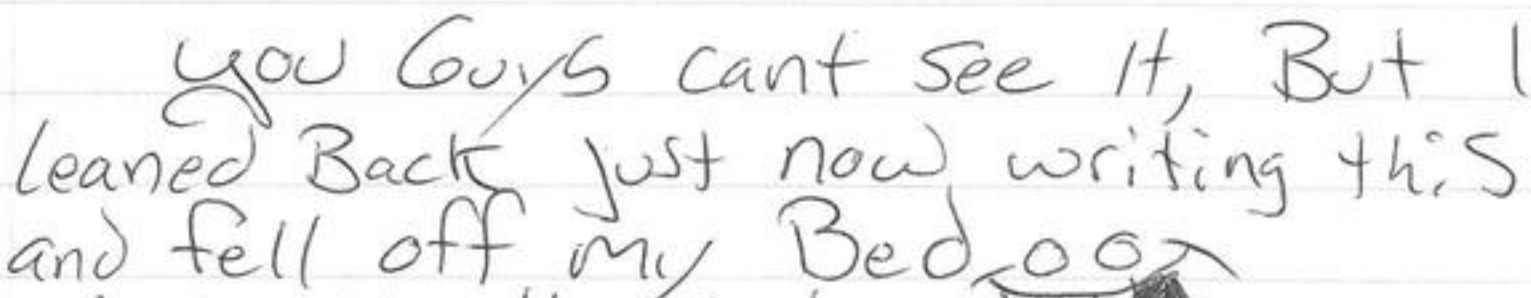 you Guys cant see It, But I
leaned Back just now writing this
and fell off my Bed